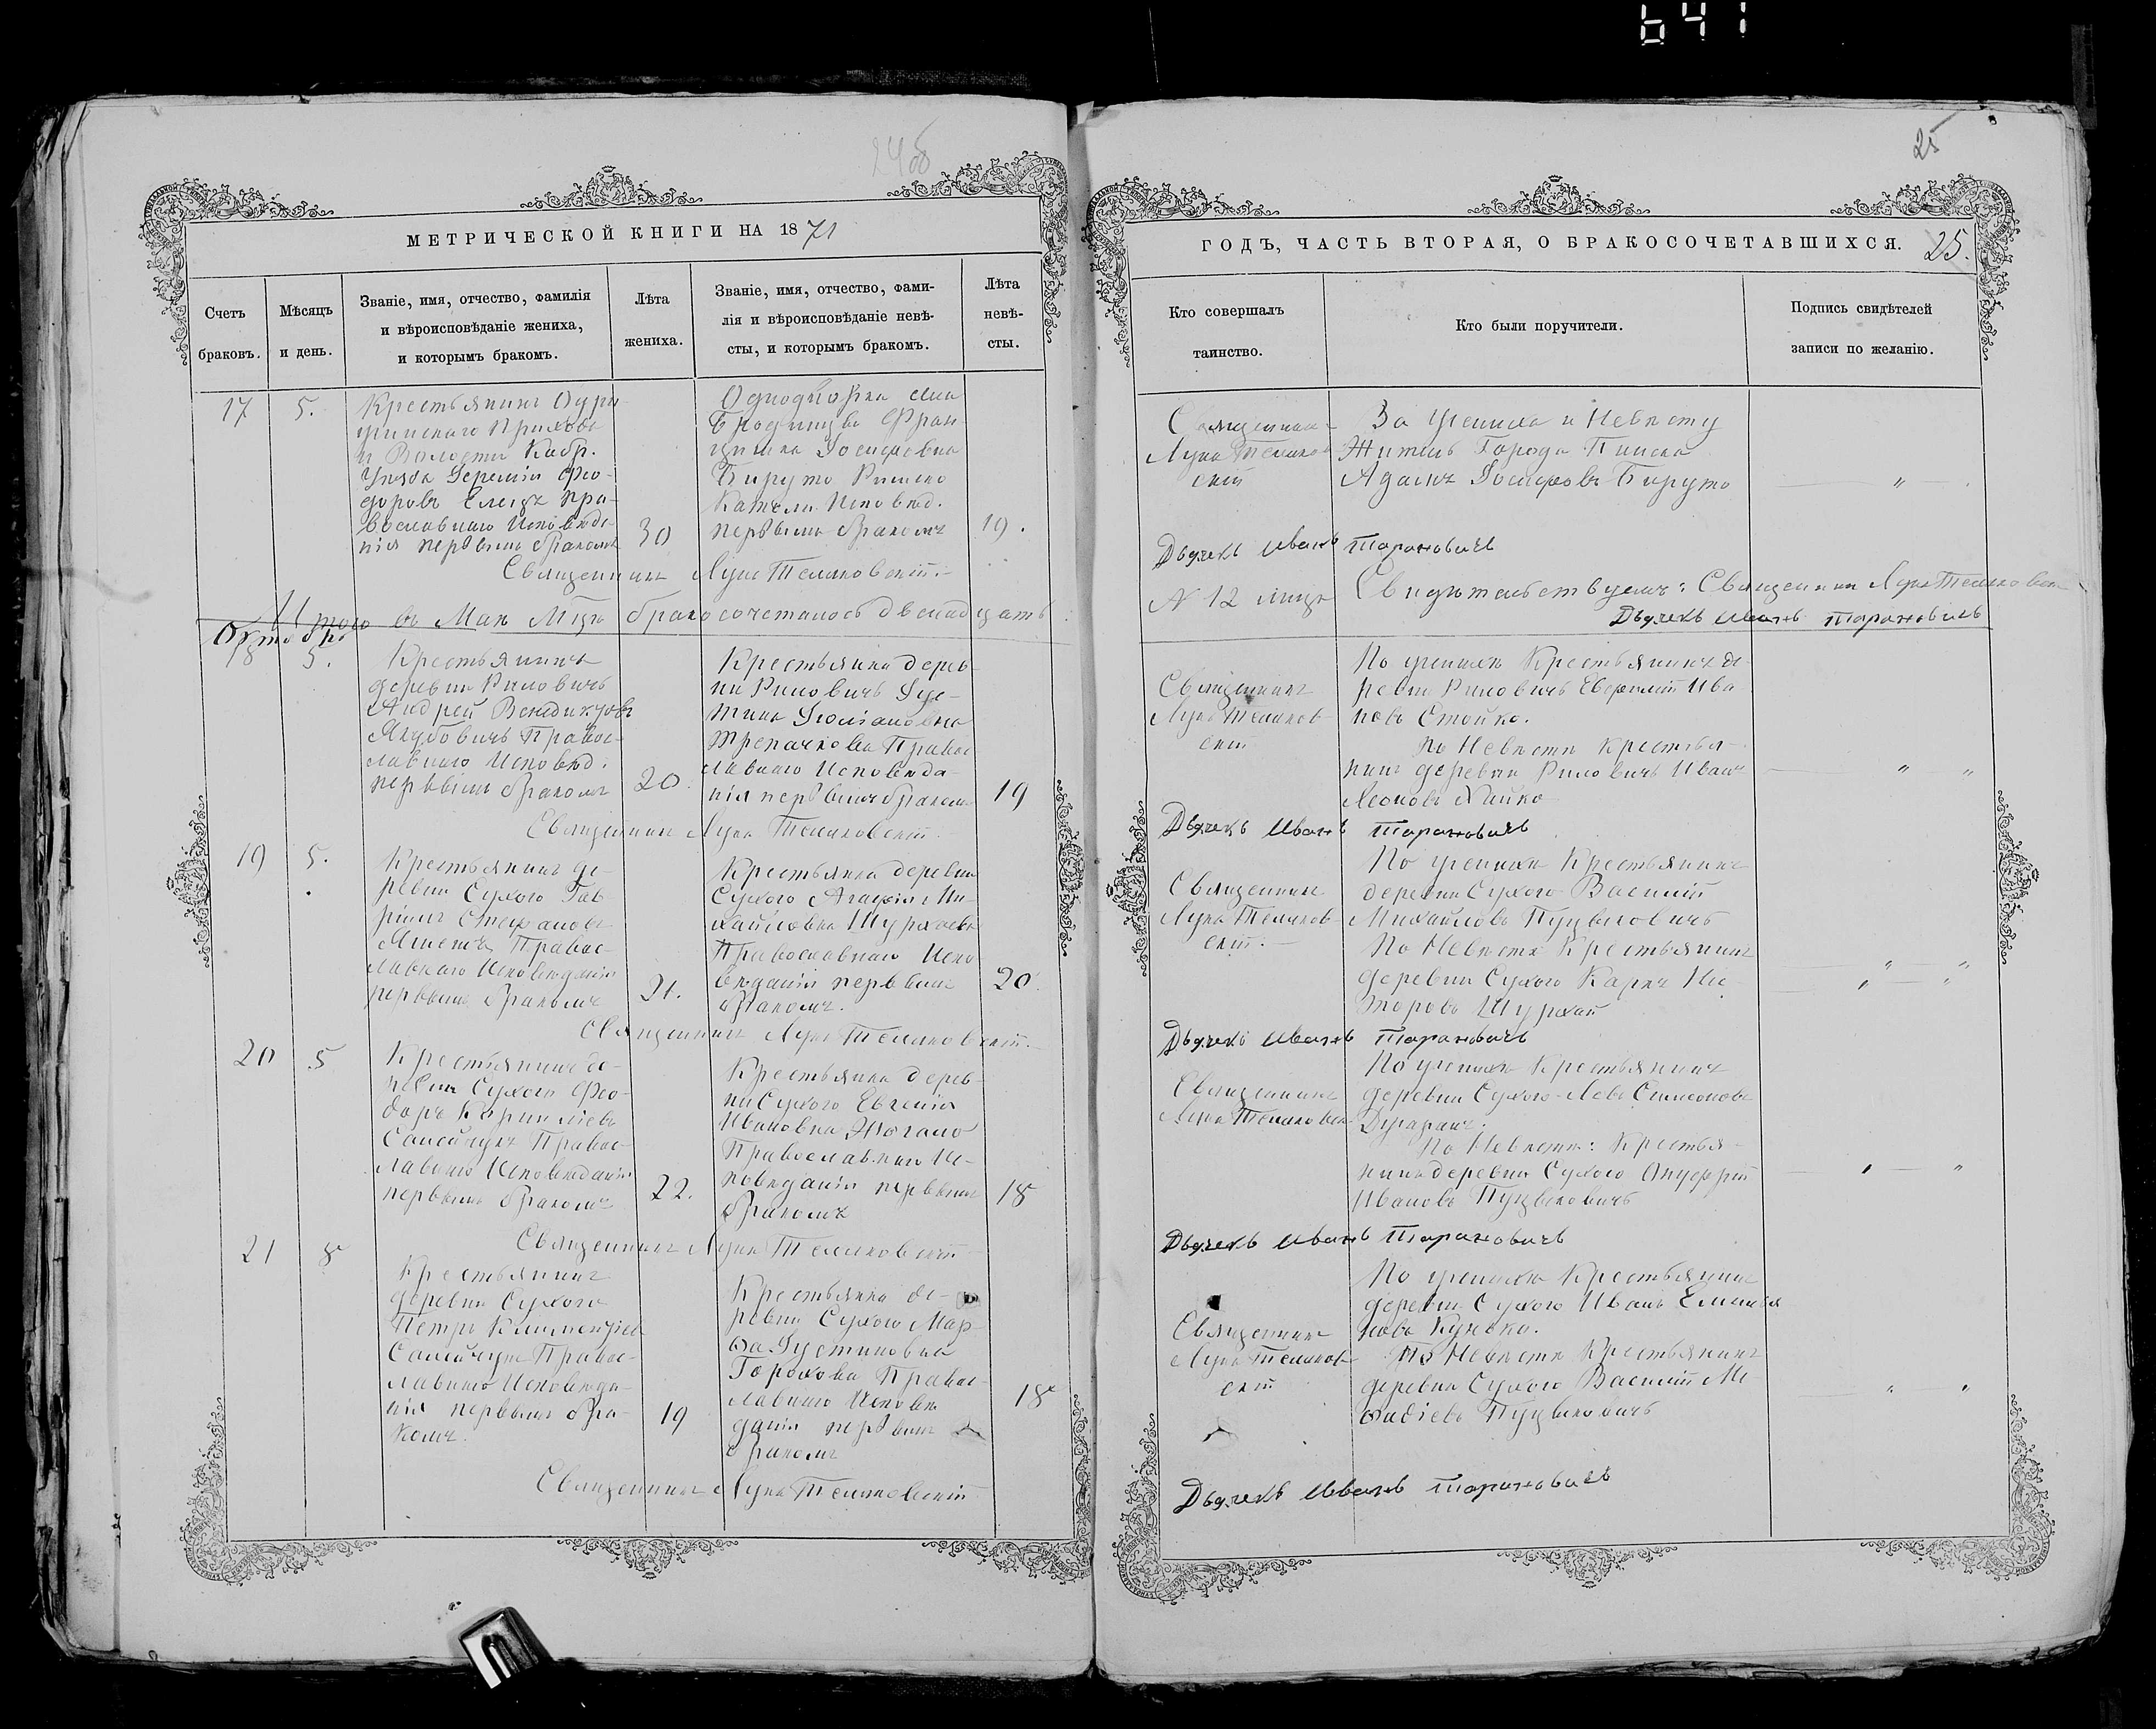 641
24об
25
МЕТРИЧЕСКОЙ КНИГИ НА 1871
ГОДЪ, ЧАСТЬ ВТОРАЯ, О БРАКОСОЧЕТАВШИХСЯ. 25.
Счетъ
браковъ.
Мѣсяцъ
и день.
Званіе, имя, отчество, фамилія
и вѣроисповѣданіе жениха,
и которымъ бракомъ.
Лѣта
жениха.
Званіе, имя, отчество, фами-
лія и вѣроисповѣданіе невѣ-
сты, и которымъ бракомъ.
Лѣта
невѣ-
сты.
Кто совершалъ
таинство.
Кто были поручители.
Подпись свидѣтелей
записи по желанію.
17
5.
Крестьянинъ
Прихода
и Волости Кобр.
Уѣзда Іеремій Фео-
доровъ пра-
вославнаго Исповѣда-
нія первымъ бракомъ
30
Однодворка
Фран
цишка Іосифовна
Бируто Римско
Катол. Исповѣд.
первымъ бракомъ
19.
Священникъ Лука Теляковскій.
Священникъ
Лука Теляков
скій
За Жениха и Невѣсту
Житель Города Пинска
Адамъ Іосифовъ Бируто
Дьячекъ Иванъ Тарановичъ
Итого въ Маѣ Мцѣ бракосочеталось двенадцать
N 12 лицъ Свидѣтельствуемъ: Священникъ Лука Теляковскій
Дьячекъ Иванъ Тарановичъ
Октобрь
18
5.
Крестьянинъ
деревни Риловичъ
Андрей Венедиктовъ
Якубовичъ Правос-
лавнаго Исповѣд.
первымъ бракомъ
20.
Крестьянка дерев-
ни Риловичъ Іус-
тина Іюліановна
Трепачкова Правос-
лавнаго Исповѣда-
нія первымъ бракомъ
19
Священникъ Лука Теляковскій.
Священникъ
Лука Теляков-
скій
По женихѣ Крестьянинъ де-
ревни Риловичъ Ива-
новъ Стойко.
По Невѣстѣ Крестья-
нинъ деревни Риловичъ Иванъ
Леоновъ
Дьячекъ Иванъ Тарановичъ
19
5.
Крестьянинъ де-
ревни Сухого Гав
ріилъ Стефановъ
Правос-
лавнаго Исповѣданія
первымъ бракомъ
21.
Крестьянка деревни
Сухого Агафія Ми-
хайловна Шурхаева
Православнаго Испо
вѣданія первымъ
бракомъ.
20.
Священникъ Лука Теляковскій.
Священникъ
Лука Теляков-
скій.
По женихѣ Крестьянинъ
деревни Сухого Василій
Михайловъ Пуцыковичъ
По Невѣстѣ Крестьянинъ
деревни Сухого Карпъ Нес-
торовъ Шурхай
Дьячекъ Иванъ Тарановичъ
20
5
Крестьянинъ де-
ревни Сухого Фео-
доръ Корниліевъ
Самойчукъ Правос-
лавнаго Исповѣданія
первымъ бракомъ
22.
Крестьянка дерев-
ни Сухого Евгенія
Ивановна
Православнаго Ис-
повѣданія первымъ
бракомъ
18
Священникъ Лука Теляковскій
Священникъ
Лука Теляковск
По женихѣ Крестьянинъ
деревни Сухого Левъ Симеоновъ
По Невѣстѣ: Крестья-
нинъ деревни Сухого Онуфрій
Ивановъ Пуцыковичъ
Дьячекъ Иванъ Тарановичъ
21
8
Крестьянинъ
деревни Сухого
Петръ Климентіевъ
Самойчукъ Правос-
лавнаго Исповѣда-
нія первымъ бра-
комъ.
19
Крестьянка де-
ревни Сухого Мар-
ѳа Іустиновна
Горохова Правос-
лавнаго Исповѣ
данія первымъ
бракомъ
18
Священникъ Лука Теляковскій
Священникъ
Лука Теляков-
скій
По женихѣ Крестьянинъ
деревни Сухого Иванъ Емилья
новъ
По Невѣстѣ Крестьянинъ
деревни Сухого Василій Ме-
ѳодіевъ Пуцыковичъ
Дьячекъ Иванъ Тарановичъ